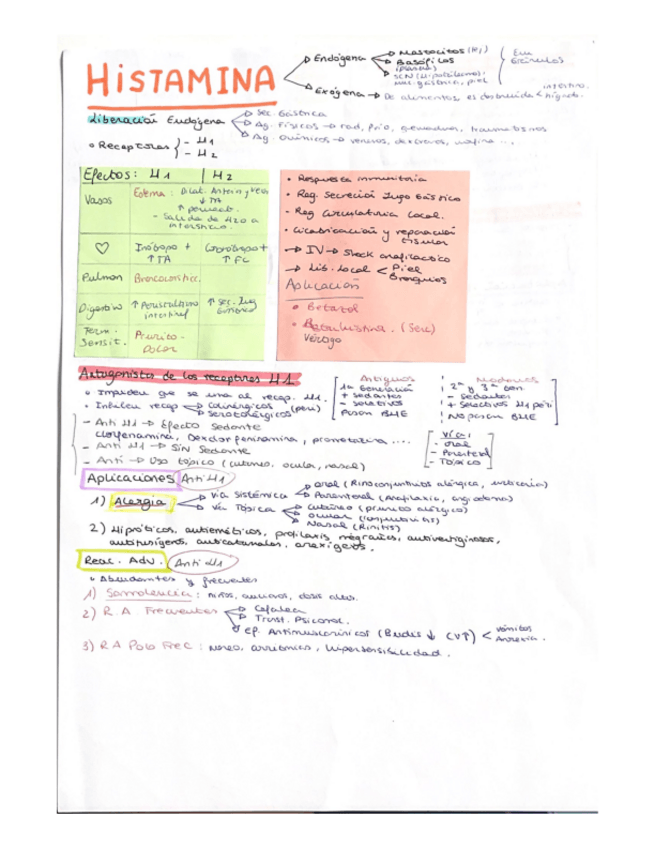 HISTAMINA
Endógena
Mastocitos
Basófilos
En
Gránulos
SCN (Hipotálamo).
Exógena → De alimentos es destruida
intestino.
hígado.
Liberación Endógena
Sec. Gástrica
Ag. Físicos → rad, frío, quemaduras, traumatismos
Ag. Químicos → venenos, dextranos, morfina ...
• Receptores
- H1
- H2
Efectos: H1 | H2
Vasos
Edema: Dilat. Arteria y venas
↓ TA
↑ permeab.
- Salida de H2O a
intersticio.
♡
Inótropo +
↑ TA
Cronótropo +
↑ FC
Pulmon
Broncoconstricc.
Digestivo
↑ Peristaltismo
intestinal
↑ Sec. Jug
Gástrico
Term.
Sensit.
Prurito.
Dolor
• Respuesta inmunitaria
• Reg. Secreción Jugo Gástrico
• Reg Circulatoria Local.
• Cicatrización y reparación
tisular
→ IV → Shock anafiláctico
→ Lib. Local
Piel
Bronquios
Aplicación
• Betazol
• Betahistina. (Serc)
Vértigo
Antagonistas de los receptores H1
• Impiden que se una al recep. H1.
• Inhiben recep
Colinérgicos
Serotonérgicos
Antiguos
1ª Generación
+ Sedantes
- Selectivos
Pasan BHE
Modernos
2ª y 3ª Gen.
- Sedantes
+ Selectivos H1 peri
No pasan BHE
- Anti H1 → Efecto Sedante
Clorfenamina, Dexclorfeniramina, prometazina ....
- Anti H1 → Sin Sedante
- Anti → Uso tópico (cutáneo, ocular, nasal)
Vías:
- oral
- Parenteral
- Tópico
Aplicaciones Anti H1
1) Alergia
Vía Sistémica
oral (Rinoconjuntivitis alérgica, urticaria)
Parenteral (Anafilaxia, angioedema)
Vía Tópica
Cutáneo (prurito alérgico)
Ocular (conjuntivitis)
Nasal (Rinitis)
2) Hipnóticos, antieméticos, profilaxis migrañas, antivertiginosos,
antitusígenos, anticatarrales, orexígenos.
Reac. Adv. Anti H1
• Abundantes y frecuentes
1) Somnolencia: niños, ancianos, dosis altas.
2) R.A Frecuentes
Cefalea
Trast. Psicomot.
Ef. Antimuscarínicos
vómitos
Anorexia.
3) R A Poco Frec: mareo, arritmias, hipersensibilidad.